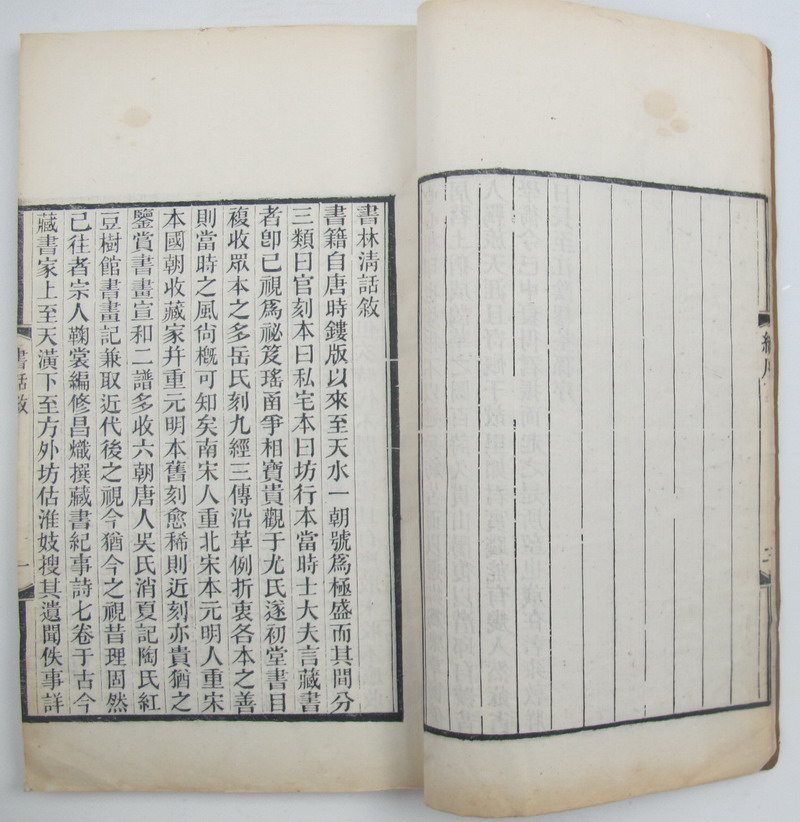 書林清話敘
書籍自唐時鏤版以來至天水一朝號爲極盛而其間分
三類曰官刻本曰私宅本曰坊行本當時士大夫言藏書
者卽已視爲祕笈瑤函爭相寶貴觀于尤氏遂初堂書目
複收眾本之多岳氏刻九經三傳沿革例折衷各本之善
則當時之風尙槪可知矣南宋人重北宋本元明人重宋
本國朝收藏家幷重元明本舊刻愈稀則近刻亦貴猶之
鑒賞書畫宣和二譜多收六朝唐人吳氏消夏記陶氏紅
豆樹館書畫記兼取近代後之視今猶今之視昔理固然
已往者宗人鞠裳編修昌熾撰藏書紀事詩七卷于古今
藏書家上至天潢下至方外坊估淮妓搜其遺聞佚事詳
書話敘
一